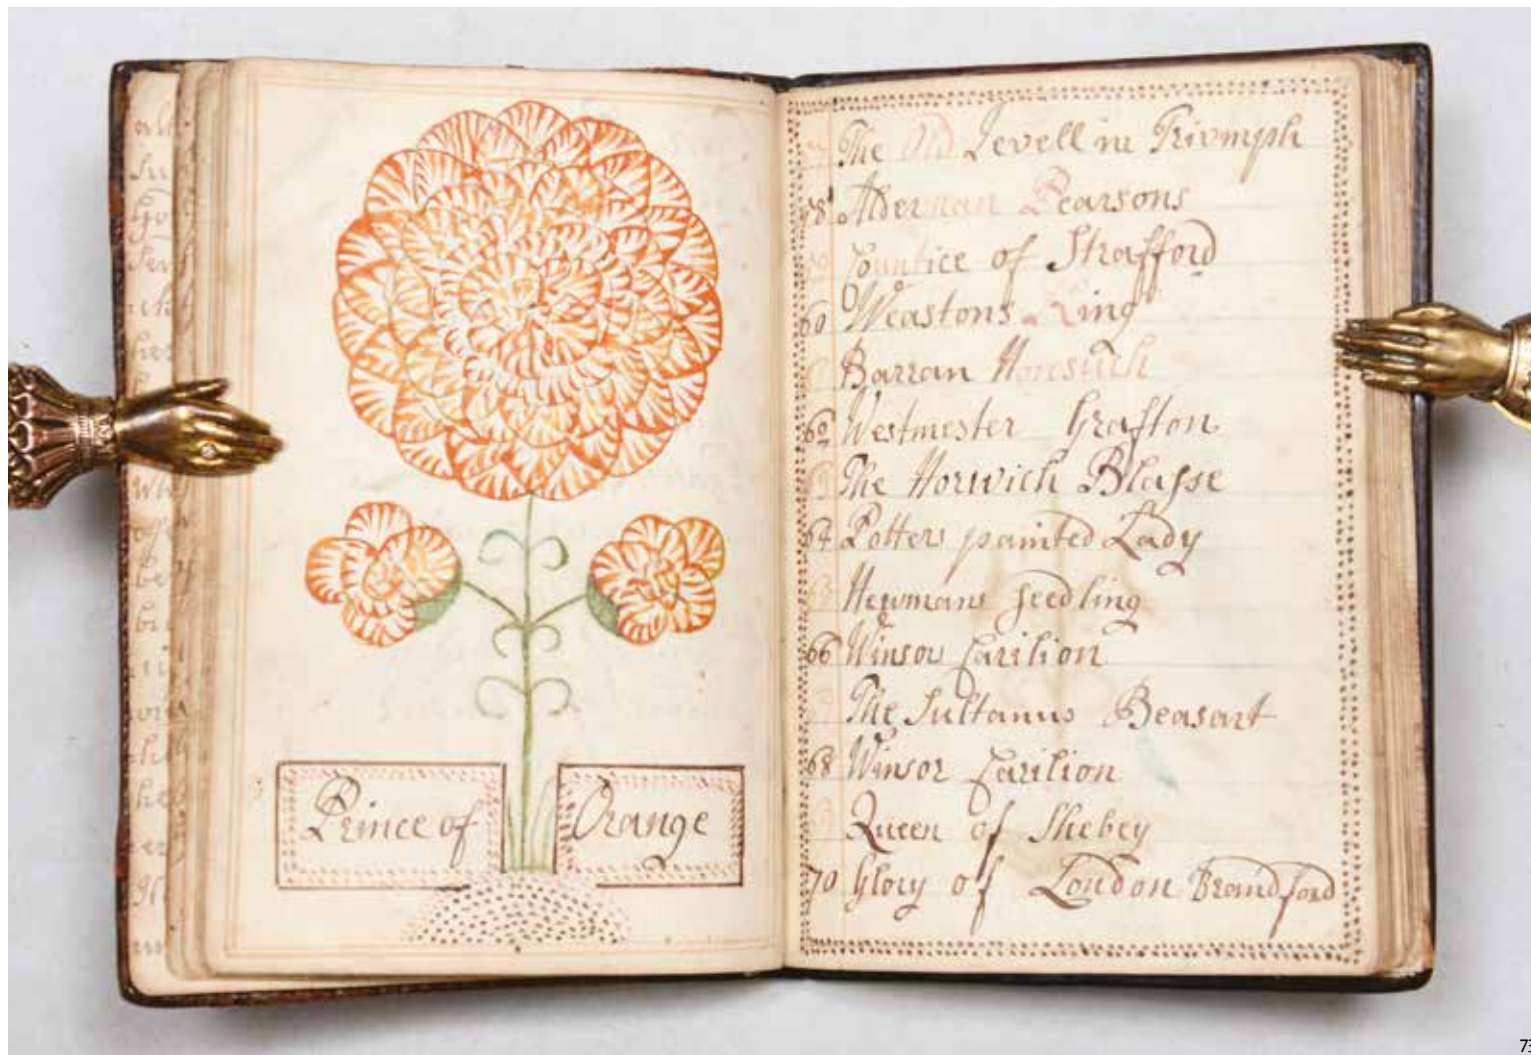 Prince of Orange
The Old Jevell in Trivmph
58 Alderman Pearsons
Countice of Strafford
60 Weastons King
Barran
62 Westmester Grafton
The Norwich Blasse
64 Potters painted Lady
Newmans Seedling
66 Winsor Carilion
The Sultanus Beasart
68 Winsor Carilion
Queen of Shebey
70 Glory of London Brandford
73